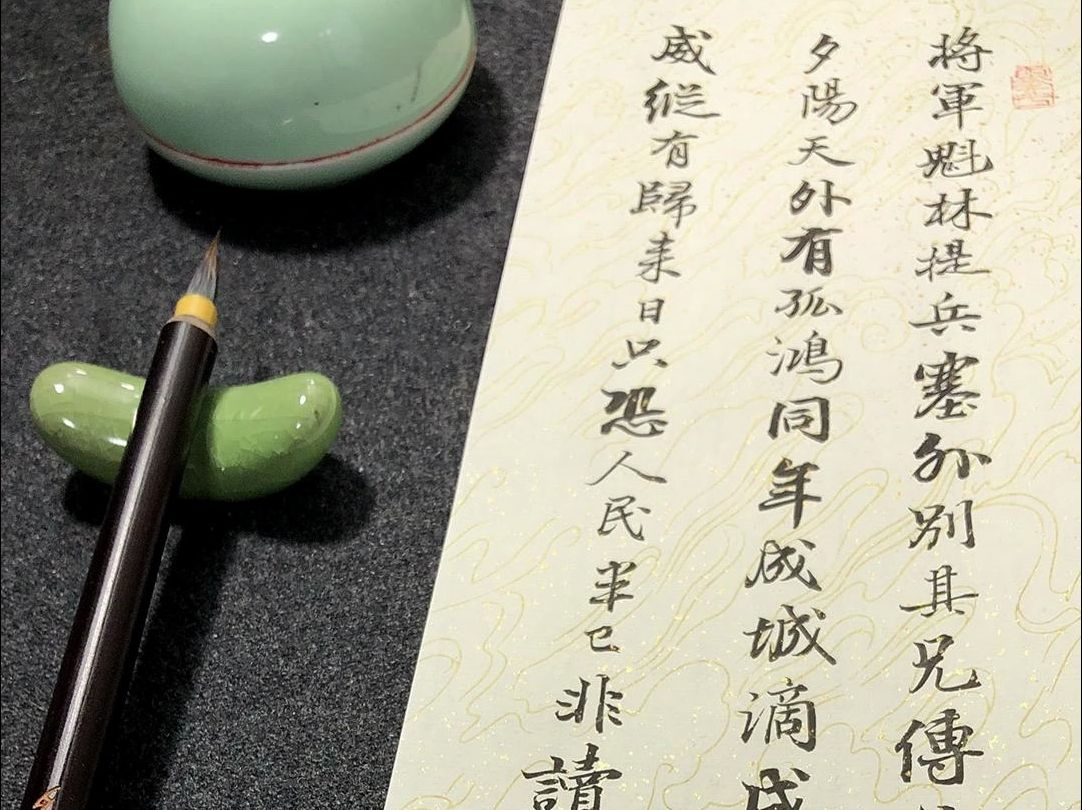 將軍魁林提兵塞外別其兄傅
夕陽天外有孤鴻同年成城滴成
威縱有歸来日只恐人民半已非
讀